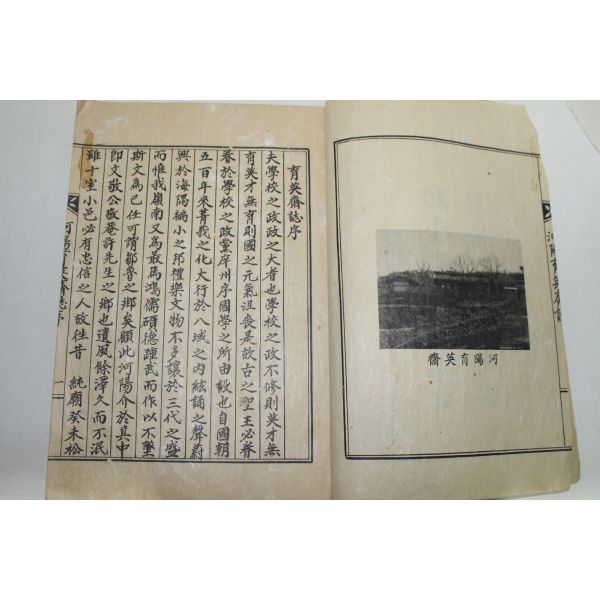 河陽育英齋
河陽育英齋誌
育英齋誌序
夫學校之政政之大者也學校之政不修則英才無
育英才無育則國之元氣沮喪是故古之聖王必眷
眷於學校之政黨庠州序國學之所由設也自國朝
五百年來菁莪之化大行於八域之內絃誦之聲蔚
興於海隅褊小之邦禮樂文物不多讓於三代之盛
而惟我嶺南又爲最焉鴻儒碩德踵武而作以不墜
斯文爲己任可謂鄒魯之鄕矣顧此河陽介於其中
卽文敬公敬菴許先生之鄕也遺風餘澤久而不泯
雖十室小邑必有忠信之人故徃昔 純廟癸未松
河陽育英齋誌序
一